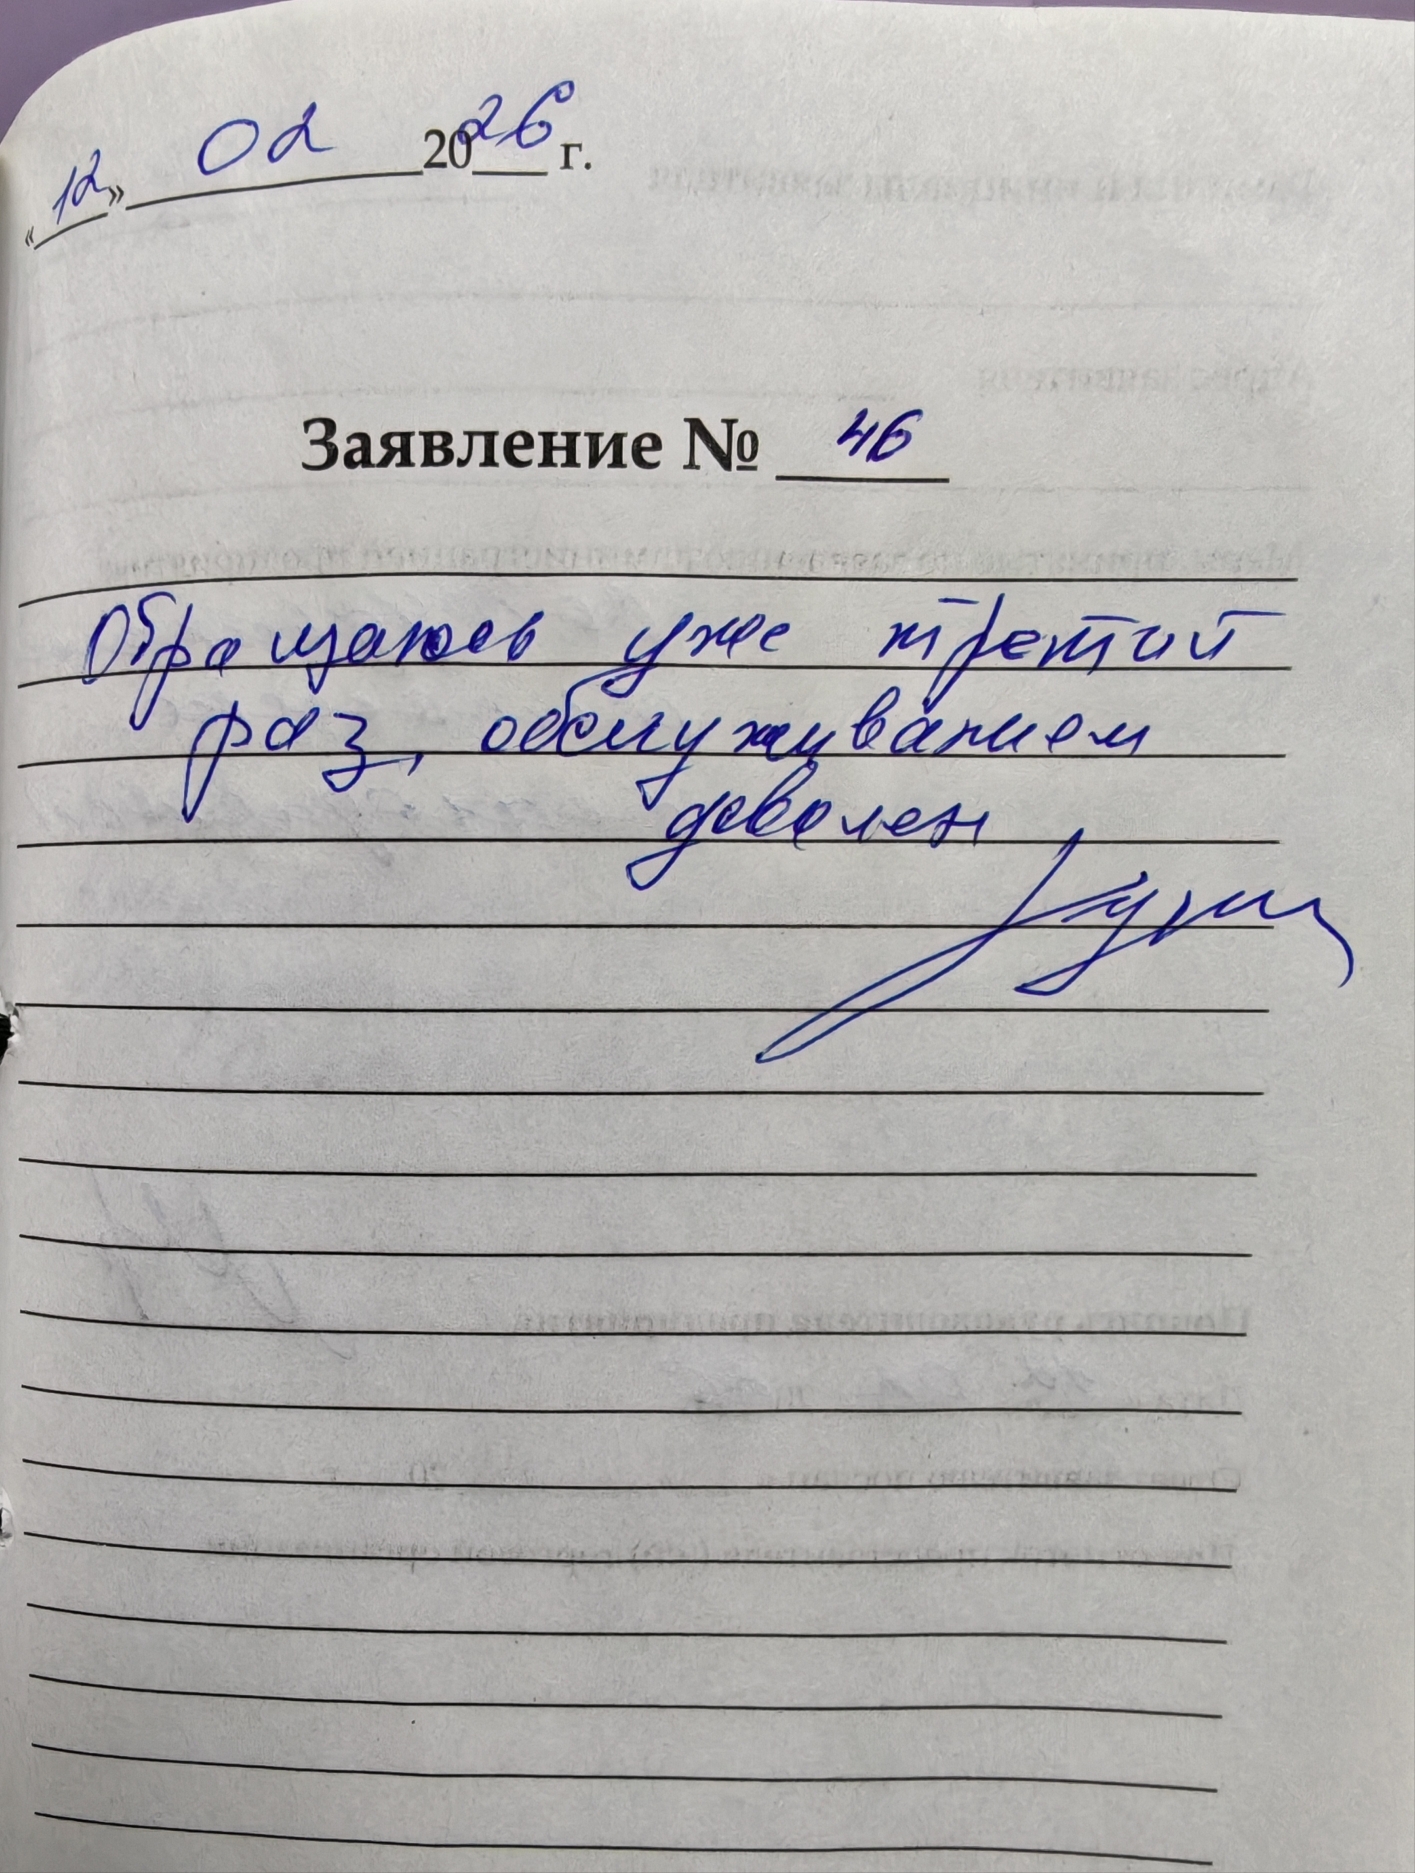 «12» 02 2026 г.
Заявление № 46
Обращаюсь уже третий
раз, обслуживанием
доволен